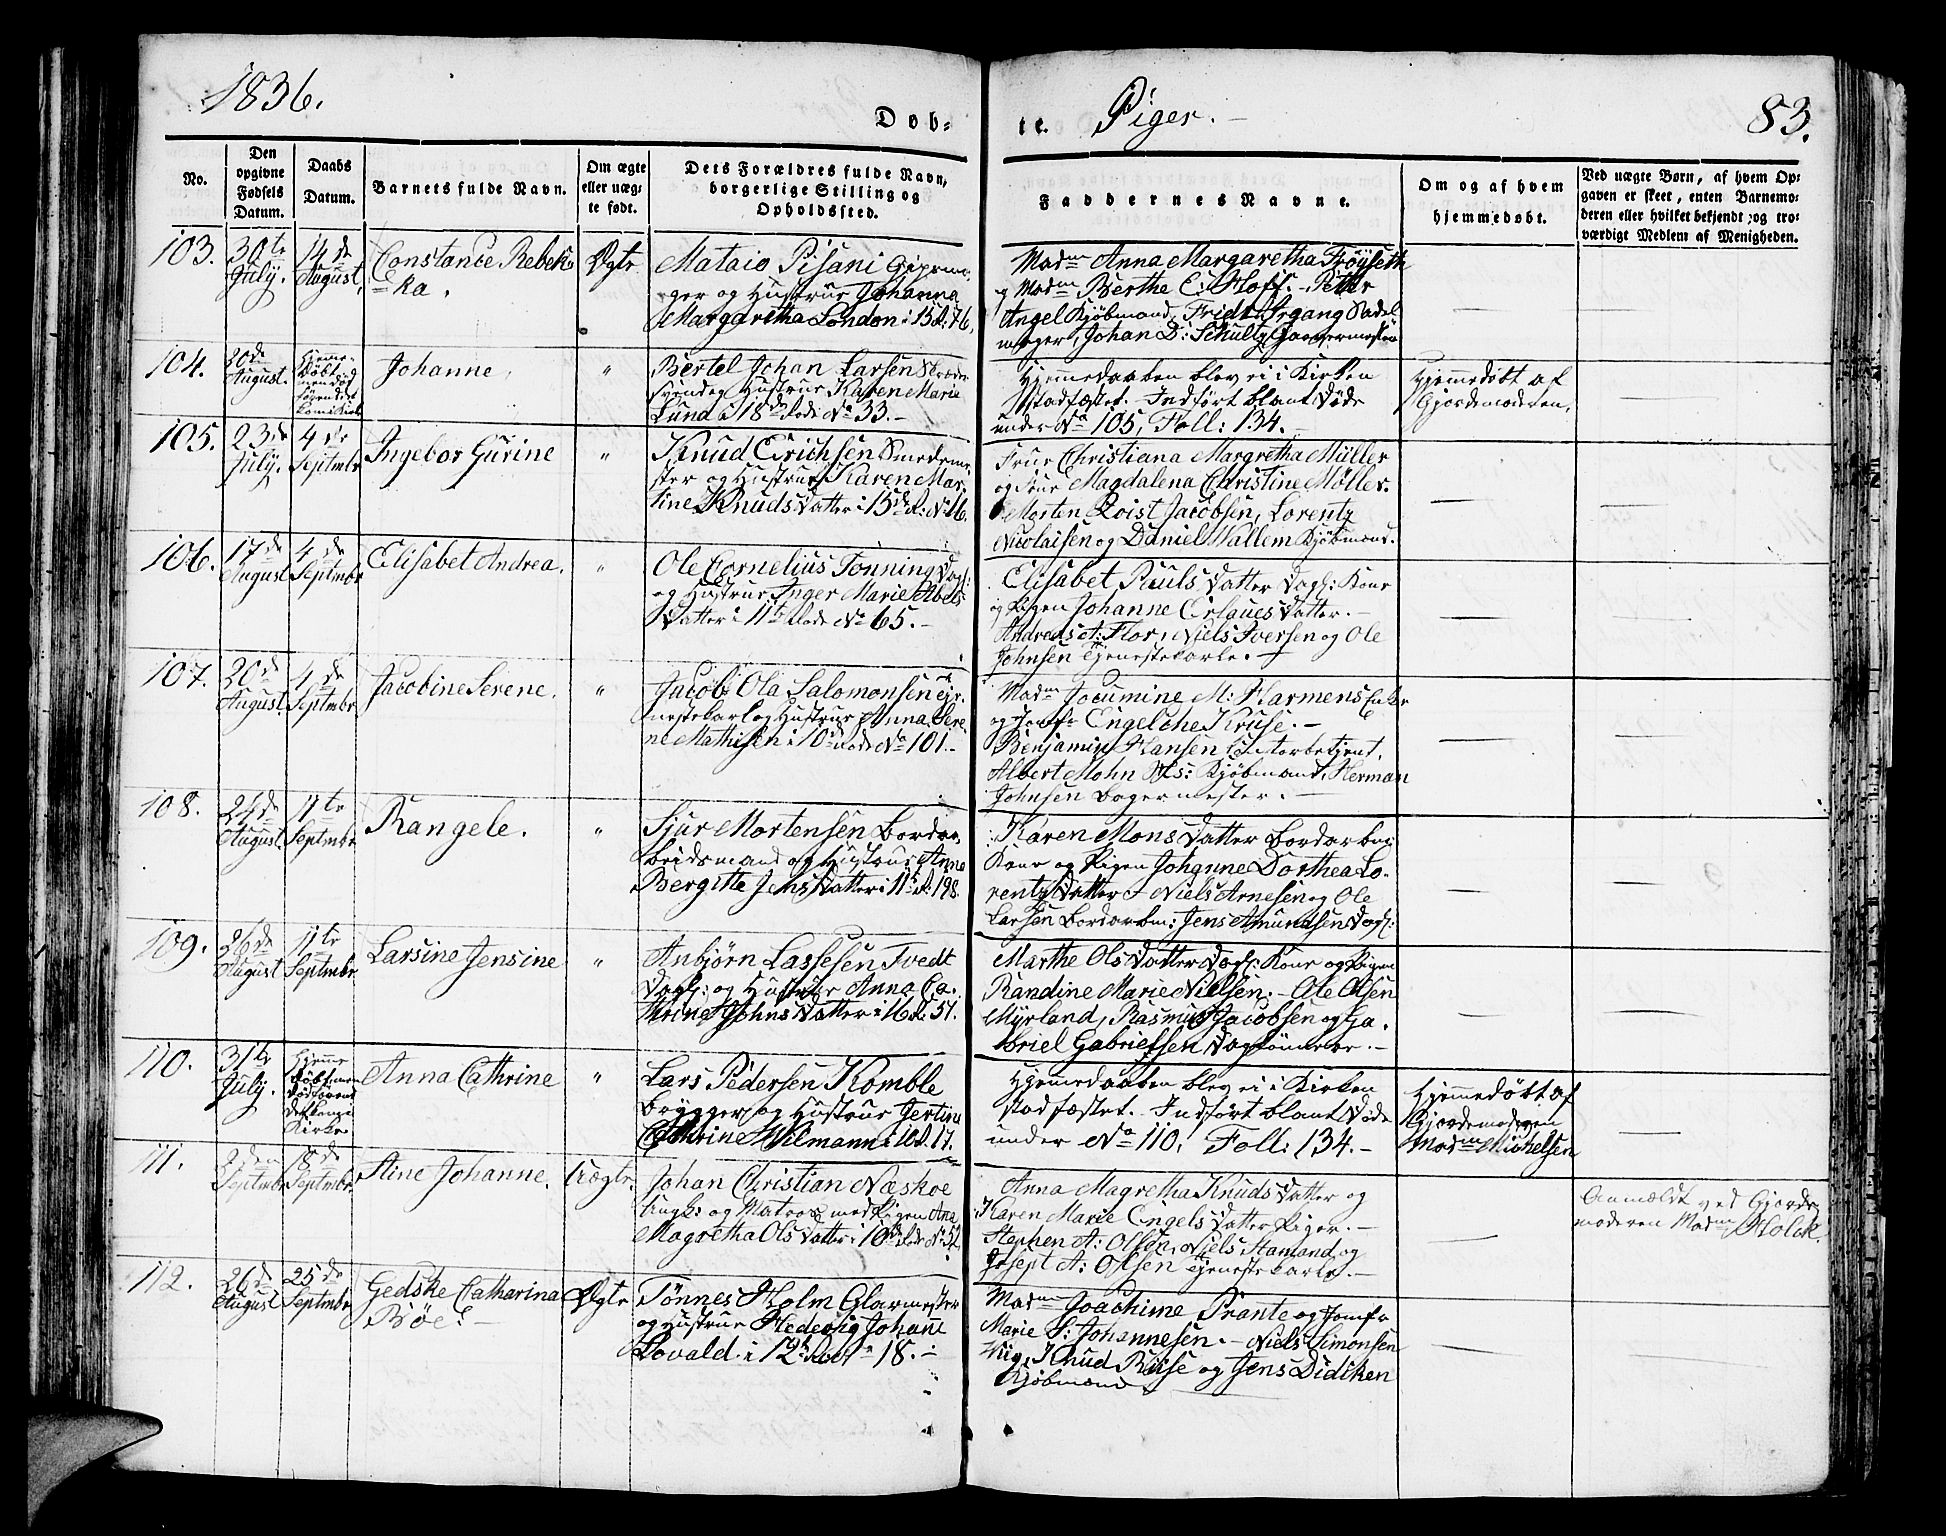 1836.
Døb-
te. Piger.
83.
No.
Den opgivne Fødsels Datum.
Daabs Datum.
Barnets fulde Navn.
Om ægte eller uægte født.
Dets Forældres fulde Navn, borgerlige Stilling og Opholdssted.
Faddernes Navne.
Om og af hvem hjemmedøbt.
Ved uægte Børn, af hvem Opgaven er skeet, enten Barnemoderen eller hvilket bekjendt og troværdigt Medlem af Menigheden.
103. 30te July. 14de August. Constance Rebekka. Ægte
Mataio Pisani Gipsmager og Hustrue Johanna
Margaretha London i 15 R: 76.
Madm Anna Margaretha Frøyseth
og Madm Berthe C. Hoff. Petter
Angel Kjøbmand, Fridr. Irgang Sadel
mager, Johan D: Schultz Garvermester
104. 20de August. Johanne. "
Bertel Johan Larsen Skræder
svend og Hustrue Karen Marie
Lund i 18de Rode No 33.
Hjemmedaaben blev ei i Kirken
stadfæstet. Indført blant Døde
under No 105, Foll: 134.
Hjemmedøbt af
Gjordemoderen.
105. 23de July. 4de Septmbr Ingebor Gurine "
Knud Erichsen Smedeme-
ster og Hustrue Karen Mar-
tine Knudsdatter i 15de R: No 16.
Frue Christiana Margretha Müller
og Frue Magdalena Christine Møller.
Morten Roist Jacobsen, Lorentz
Nicolaisen og Daniel Wallem Kjøbmænd.
106. 17de August 4de Septmbr Elisabet Andrea. "
Ole Cornelius Tonning Dagl:
og Hustrue Inger Marie Abels
Datter i 11te Rode No 65.
Elisabet Pouls Datter Dagl: Kone
og Pigen Johanne Erlands Datter.
Andreas A: Flor, Niels Iversen og Ole
Johnsen Tjenestekarle.
107. 20de August. 4de Septmbr Jacobine Serene. "
Jacob Ola Salomonsen Tje-
nestekarl og Hustrue Anna Sere
ne Mathisen i 10de Rode No 101.
Madm Jocumine M: Harmens Enke
og Jomfr Engelche Kruse.
Benjamin Hansen Contorbetjent,
Albert Mohn Nls: Kjøbmand, Herman
Johnsen Bagermester.
108. 24de August. 11te Septmbr. Rangele. "
Sjur Mortensen Bordar-
beidsmand og Hustrue Anne
Bergitte Jens Datter i 11te R: 198.
Karen Mons Datter Bordarbm:
Kone og Pigen Johanne Dorthea Lo-
rentz Datter. Niels Arnesen og Ole
Larsen Bordarbm: Jens Amundsen Dagl:
109. 26de August 11te Septmbr. Larsine Jensine "
Anbjørn Lassesen Tvedt
Dagl: og Hustrue Anna Ca-
thrine Johns Datter i 16 R: 51.
Marthe Ols Datter Dagl: Kone og Pigen
Randine Marie Nielsen. Ole Olsen
Myrland, Rasmus Jacobsen og Ga-
briel Gabrielsen Dagl
110. 31te July. Anna Cathrine "
Lars Pedersen Komble
Brygger og Hustrue Jertine
Cathrine Wilmann i 10 R. 17.
Hjemmedaaben blev ei i Kirken
stadfæstet. Indført blant Døde
under No 110, Foll: 134.
Hjemmedøbt af
Gjordemoderen
Madm Michelsen
111. 2den Septmbr 18de Septmbr. Stine Johanne. Uægte.
Johan Christian Næskoe
Ungk: og Matros med Pigen Ana
Magretha Ols Datter i 10de Rode No 52
Anna Magretha Knuds Datter og
Karen Marie Engels Datter Piger.
Stephen A: Olsen, Niels Stamand og
Josept A: Olsen Tjenestekarle.
Anmeldt ved Gjorde-
moderen Madm Holck.
112. 26de August 25de Septmbr Gedske Catharina Bøe. Ægte
Tønnes Holm Glarmester
og Hustrue Hedevig Johane
Lovald i 12te Rode No 18.
Madm Joachime Prante og Jomfr
Marie S: Johannesen. Niels Simonsen
Wiig, Knud Riise og Jens Didiken
Kjøbmænd